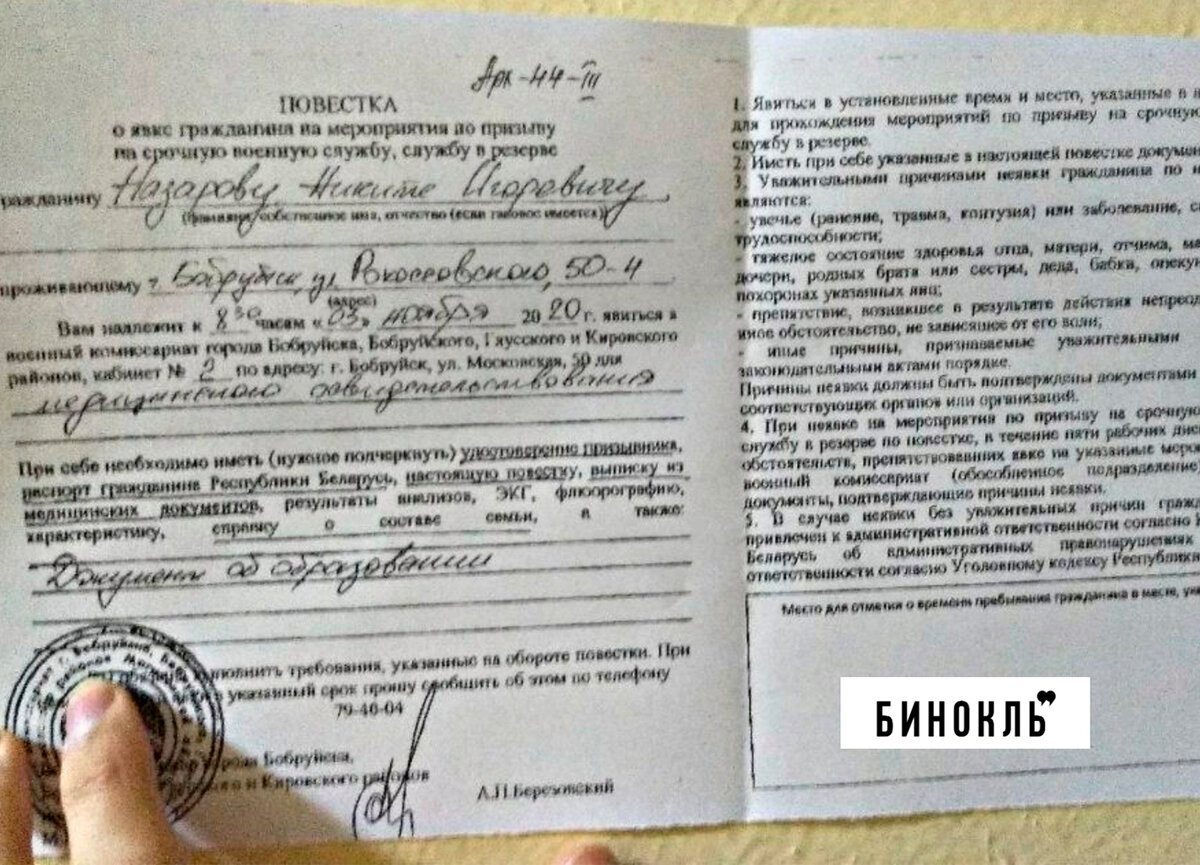 Арк-44-III
ПОВЕСТКА
о явке гражданина на мероприятия по призыву
на срочную военную службу, службу в резерве
гражданину Назарову Никите Игоревичу
(фамилия, собственное имя, отчество (если таковое имеется))
проживающему г. Бобруйск, ул Рокоссовского, 50-4
(адрес)
Вам надлежит к 8 30 часам «03» ноября 2020 г. явиться в
военный комиссариат города Бобруйска, Бобруйского, Глусского и Кировского
районов, кабинет № 2 по адресу: г. Бобруйск, ул. Московская, 50 для
медицинского освидетельствования
При себе необходимо иметь (нужное подчеркнуть) удостоверение призывника,
паспорт гражданина Республики Беларусь, настоящую повестку, выписку из
медицинских документов, результаты анализов, ЭКГ, флюорографию,
характеристику, справку о составе семьи, а также:
Документ об образовании
выполнить требования, указанные на обороте повестки. При
в указанный срок прошу сообщить об этом по телефону
79-40-04
города Бобруйска,
и Кировского районов
А.П.Березовский
1. Явиться в установленные время и место, указанные в
для прохождения мероприятий по призыву на срочную
службу в резерве.
2. Иметь при себе указанные в настоящей повестке
3. Уважительными причинами неявки гражданина по
являются:
- увечье (ранение, травма, контузия) или заболевание,
трудоспособности;
- тяжелое состояние здоровья отца, матери, отчима,
дочери, родных брата или сестры, деда, бабки,
похоронах указанных лиц;
- препятствие, возникшее в результате действия
иное обстоятельство, не зависящее от его воли;
- иные причины, признаваемые уважительными
законодательными актами порядке.
Причины неявки должны быть подтверждены документами
соответствующих органов или организаций.
4. При неявке на мероприятия по призыву на срочную
службу в резерве по повестке, в течение пяти рабочих
обстоятельств, препятствовавших явке на указанные
военный комиссариат (обособленное подразделение
документы, подтверждающие причины неявки.
5. В случае неявки без уважительных причин
привлечен к административной ответственности согласно
Беларусь об административных правонарушениях
ответственности согласно Уголовному кодексу
Место для отметки о времени пребывания гражданина в месте,
БИНОКЛЬ